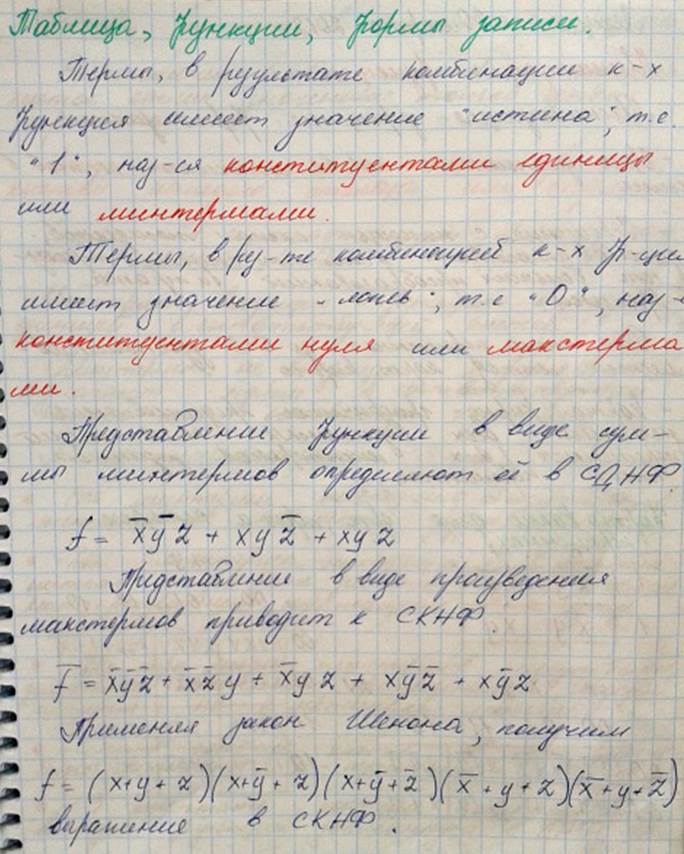 Таблица, функции, формы записи.
Термы, в результате комбинации к-х
функция имеет значение "истина", т.е.
"1", наз-ся конституентами единицы
или минтермами.
Термы, в рез-те комбинацией к-х ф-ция
имеет значение "ложь", т.е "0", наз-
конституентами нуля или макстерма
ми.
Представление функции в виде сум-
мы минтермов определяют её в СДНФ.
f = x̅y̅z + xyz̅ + xyz
Представление в виде произведения
макстермов приводит к СКНФ.
f̅ = x̅y̅z̅ + x̅z̅y + x̅yz + xy̅z̅ + xy̅z
Применяя закон Шенона, получим
f = (x+y+z)(x+y̅+z)(x+y̅+z̅)(x̅+y+z)(x̅+y+z̅)
выражение в СКНФ.